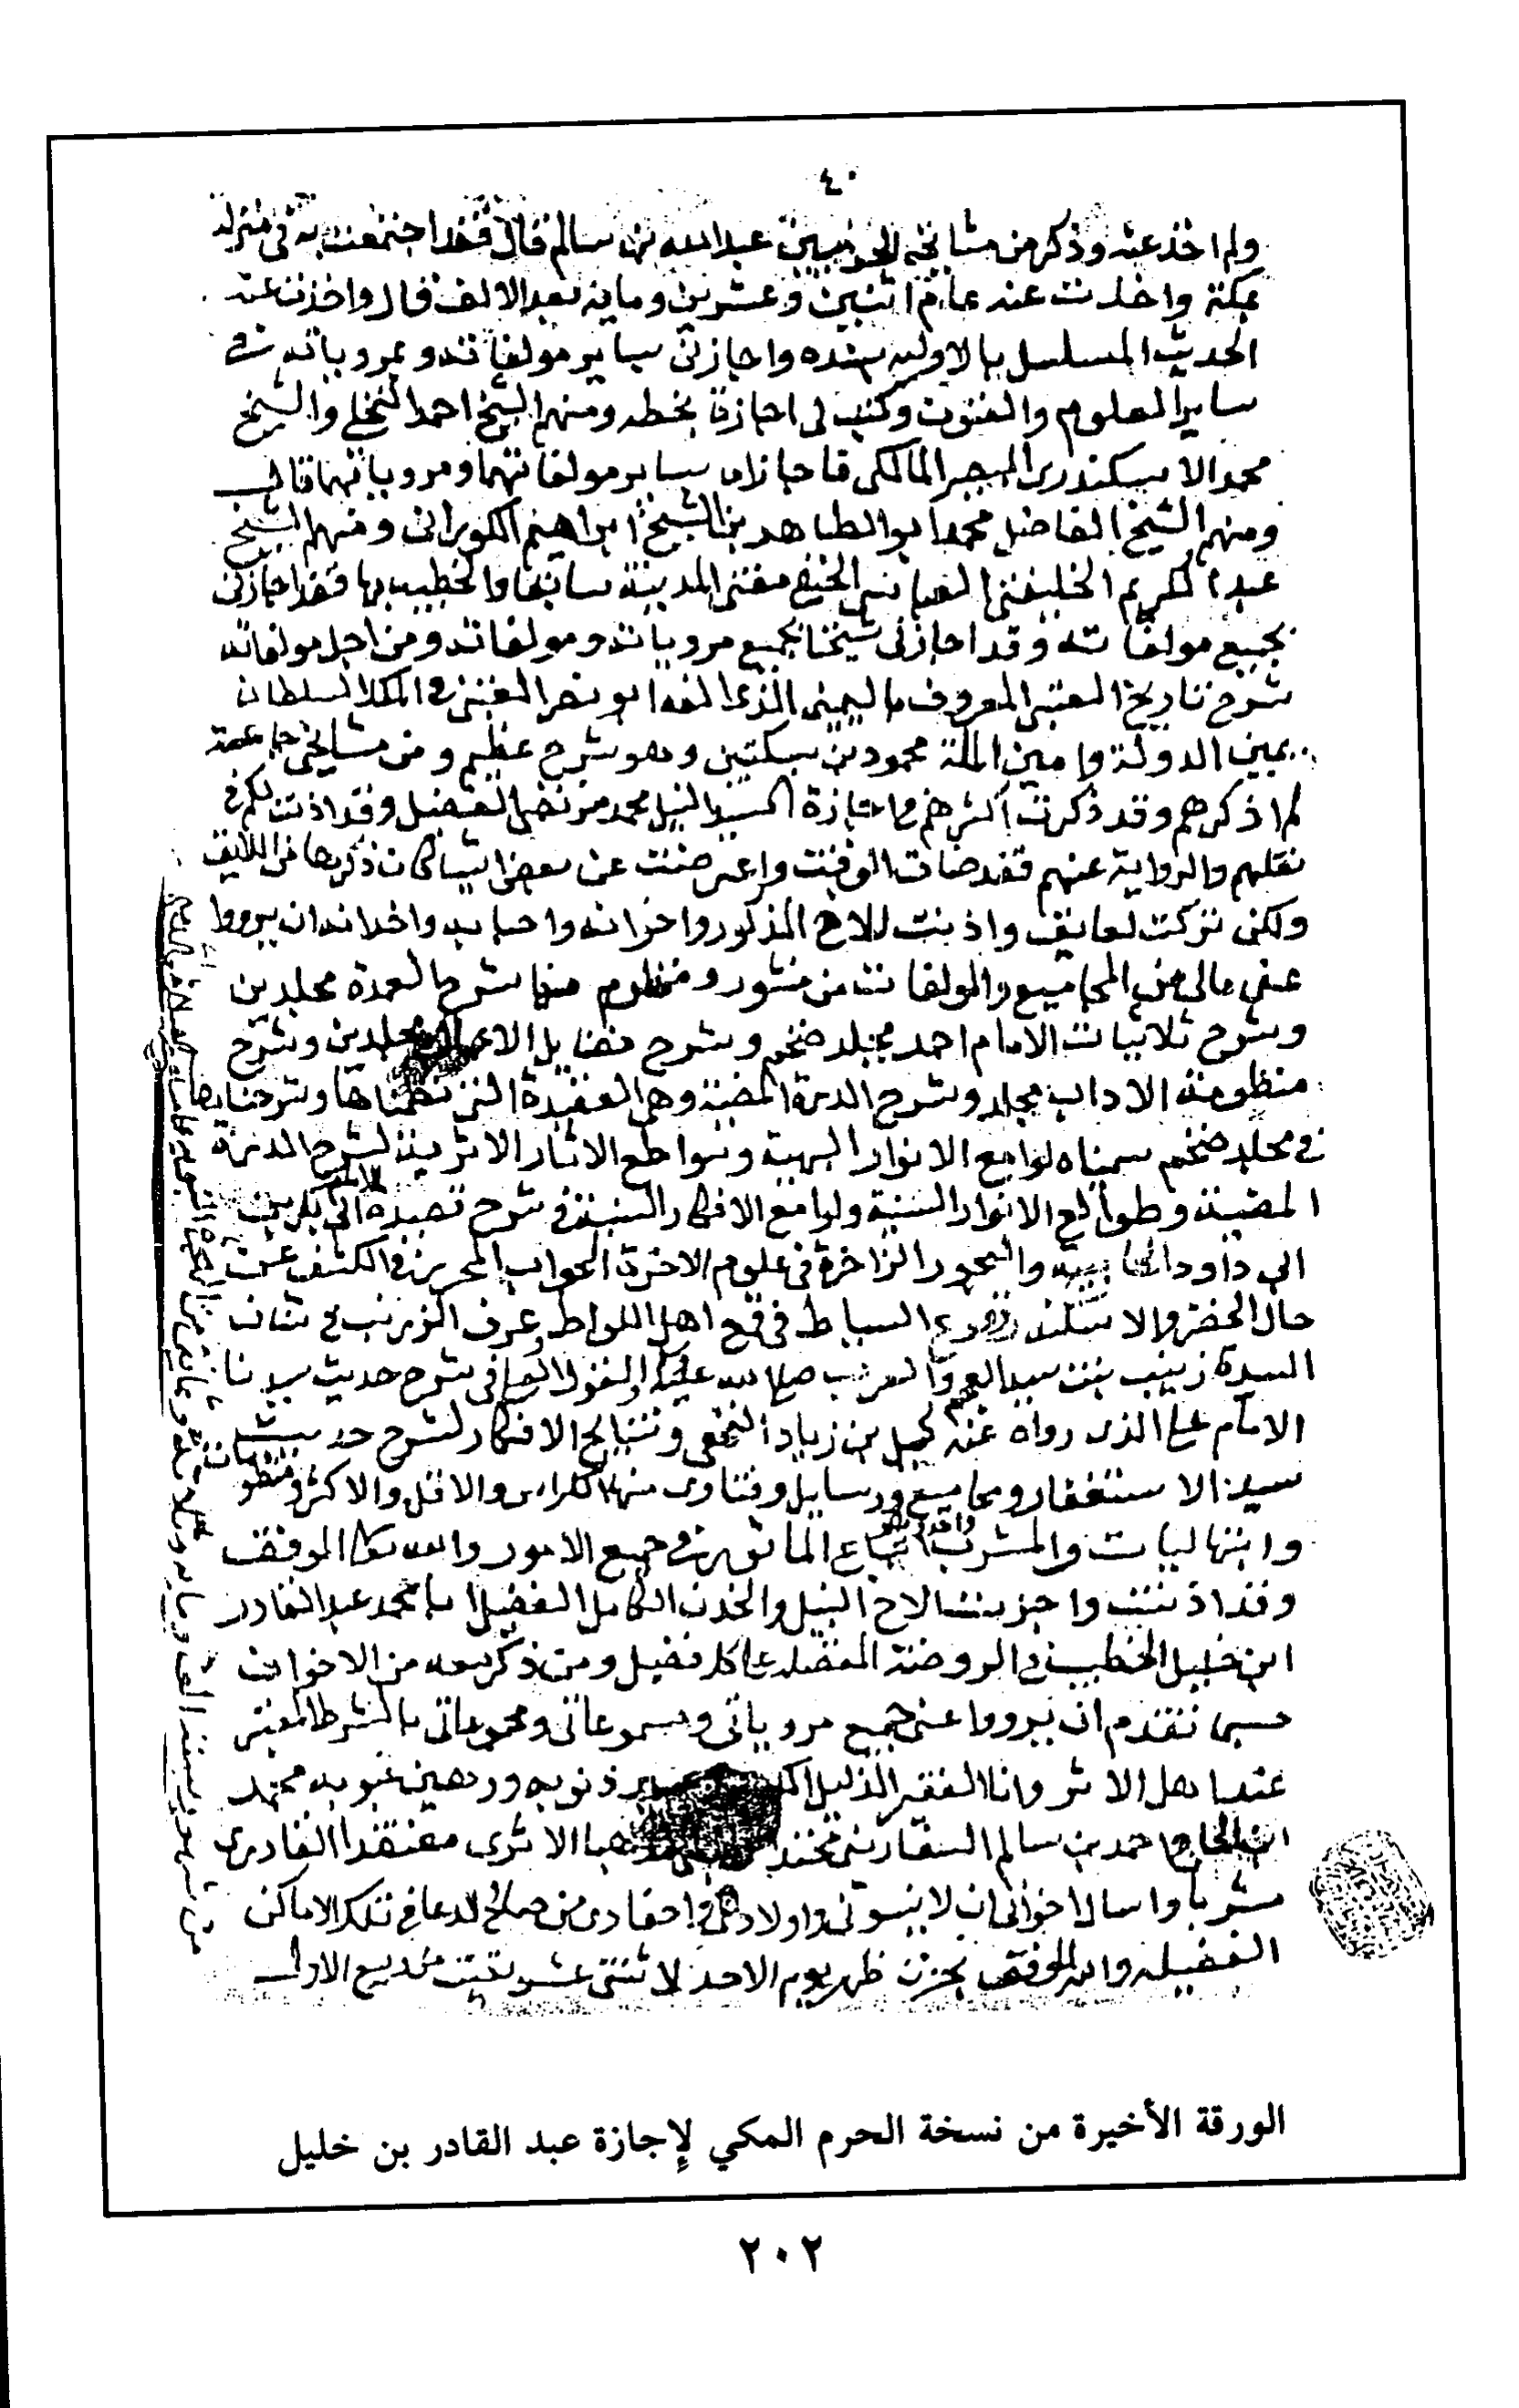 ٤٠
ولم اخذ عنه وذكر من مشايخه عبد الله بن سالم قال فقد اجتمعت به في منزله
بمكة واخذت عنه عام اثنين وعشرين وماية بعد الالف قال واخذت عنه
الحديث المسلسل بالاوليه بسنده واجازنى بساير مولفاته وبمروياته فى
ساير العلوم والفنون وكتب لى اجازة بخطه ومنهم الشيخ احمد النخلى والشيخ
محمد الاسكندرى المالكى فاجازاه بساير مولفاتهما ومروياتهما قال
ومنهم الشيخ الفاضل محمد ابو الطاهر بن الشيخ ابراهيم الكورانى ومنهم الشيخ
عبد الكريم الخليفتى العباسى الحنفى مفتى المدينة سابقا والخطيب بها فقد اجازنى
بجميع مولفاته وقد اجازنى شيخنا بجميع مروياته ومولفاته ومن اجل مولفاته
شرح تاريخ العتبى المعروف باليمينى الذى الفه ابو نصر العتبى فى الملك السلطان
يمين الدولة وامين الملة محمود بن سبكتين وهو شرح عظيم ومن مشايخى جماعة
لم اذكرهم وقد ذكرت اكثرهم فى اجازة السيد النبيل محمد مرتضى الفضيل وقد اذنت لكم فى
نقلهم والرواية عنهم فقد ضاق الوقت واعرضت عن بعض اشيا كان ذكرها من اللايق
ولكن تركت لعايق واذنت للاخ المذكور واخوانه واحبابه واخدانه ان يرووا
عنى مالى من المجاميع والمولفات من منثور ومنظوم منها شرح العمدة مجلدين
وشرح ثلاثيات الامام احمد مجلد ضخم وشرح فضايل الاعمال مجلدين وشرح
منظومة الاداب مجلد وشرح الدرة المضية وهى العقيدة التى نظمناها وشرحناها
فى مجلد ضخم سميناه لوامع الانوار البهية وسواطع الاثار الاثرية لشرح الدرة
المضية وطوالع الانوار السنية ولوامع الافكار السنية فى شرح قصيدة ابى بكر بن
ابى داود الحاييه والبحور الزاخرة فى علوم الاخرة الجواب المحرر فى الكشف عن
حال الخضر والاسكندر قرع السياط فى قمع اهل اللواط عرف الزرنب فى شان
السيدة زينب بنت سيد العجم والعرب صلى الله عليه وسلم القول العلى فى شرح حديث سيدنا
الامام على الذى رواه عنه كميل بن زياد النخعى ونتايج الافكار لشرح حديث
سيد الاستغفار ومجاميع ورسايل وفتاوى منها الكراس والاقل والاكثر ومنظومات
وابتهاليات والمشرب اتباع الماثور فى جميع الامور والله تعالى الموفق
وقد اذنت واجزت الاخ النبيل والخدن الكامل الفضيل ابا محمد عبد القادر
ابن خليل الخطيب فى الروضة المفضلة على كل فضيل ومن ذكر معه من الاخوان
حسبما تقدم ان يرووا عنى جميع مروياتى ومسموعاتى ومجموعاتى بالشرط المعتبر
عند اهل الاثر وانا الفقير الذليل ذنوبه ورهين عيوبه محمد
ابن الحاج احمد بن سالم السفارينى محتدا الاثرى معتقدا القادرى
مشربا واسال اخوانى ان لا ينسونى واولادى واحفادى من صالح الدعا فى تلك الاماكن
الفضيلة والله الموفق حررت ظهر يوم الاحد لاثنتى عشر بقيت من ربيع الاول
من شهور سنة الف وماية
الورقة الأخيرة من نسخة الحرم المكي لإجازة عبد القادر بن خليل
٢٠٢